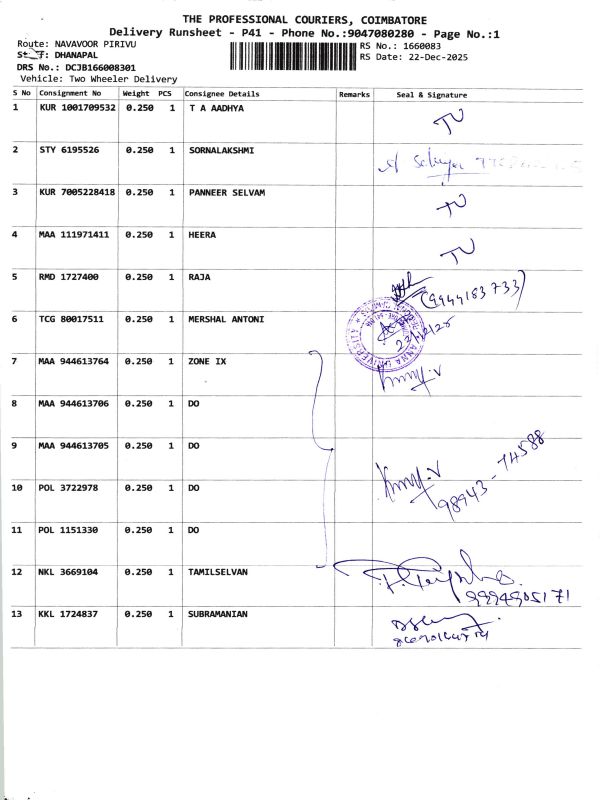 THE PROFESSIONAL COURIERS, COIMBATORE
Delivery Runsheet - P41 - Phone No.:9047080280 - Page No.:1
Route: NAVAVOOR PIRIVU
RS No.: 1660083
DHANAPAL
RS Date: 22-Dec-2025
DRS No.: DCJB166008301
Vehicle: Two Wheeler Delivery
S No Consignment No Weight PCS Consignee Details Remarks Seal & Signature
1 KUR 1001709532 0.250 1 T A AADHYA
TV
2 STY 6195526 0.250 1 SORNALAKSHMI
3 KUR 7005228418 0.250 1 PANNEER SELVAM
TV
4 MAA 111971411 0.250 1 HEERA
TV
5 RMD 1727400 0.250 1 RAJA
(9944183733)
6 TCG 80017511 0.250 1 MERSHAL ANTONI
22/12/25
ANNA UNIVERSITY
7 MAA 944613764 0.250 1 ZONE IX
8 MAA 944613706 0.250 1 DO
9 MAA 944613705 0.250 1 DO
98943-74588
10 POL 3722978 0.250 1 DO
11 POL 1151330 0.250 1 DO
12 NKL 3669104 0.250 1 TAMILSELVAN
9994905171
13 KKL 1724837 0.250 1 SUBRAMANIAN